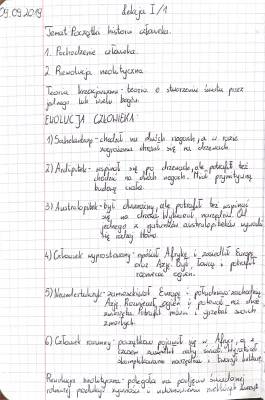 09.09.2019 Lekcja I/1
Temat: Początki historii człowieka.
1. Pochodzenie człowieka.
2. Rewolucja neolityczna
Teoria kreacjonizmu - teoria o stworzeniu świata przez
jednego lub wielu bogów.
EWOLUCJA CZŁOWIEKA
1) - chodził na dwóch nogach, a w razie
zagrożenia chronił się na drzewach.
2) Ardipitek - wspinał się po drzewach, ale potrafił też
chodzić na dwóch nogach. Miał prymitywną
budowę ciała.
3) Australopitek - był dwunożny, ale potrafił też wspinać
się na drzewa. narzędzi. Od
jednego z gatunków australopiteków wywodzi
się rodzaj Homo.
4) Człowiek wyprostowany - opuścił Afrykę i zasiedlił Europę
oraz Azję. Był łowcą i potrafił
rozniecać ogień.
5) Neandertalczyk - zamieszkiwał Europę i południowo-zachodnią
Azję. Rozniecał ogień i polował na duże
zwierzęta. Potrafił mówić i grzebał swoich
zmarłych.
6) Człowiek rozumny - początkowo pojawił się w Afryce, a z
czasem zasiedlił cały świat.
skomplikowane narzędzia i tworzył kulturę.
Rewolucja neolityczna - polegała na podjęciu świadomej
rolniczej produkcji żywności i udomowieniu niektórych zwierząt